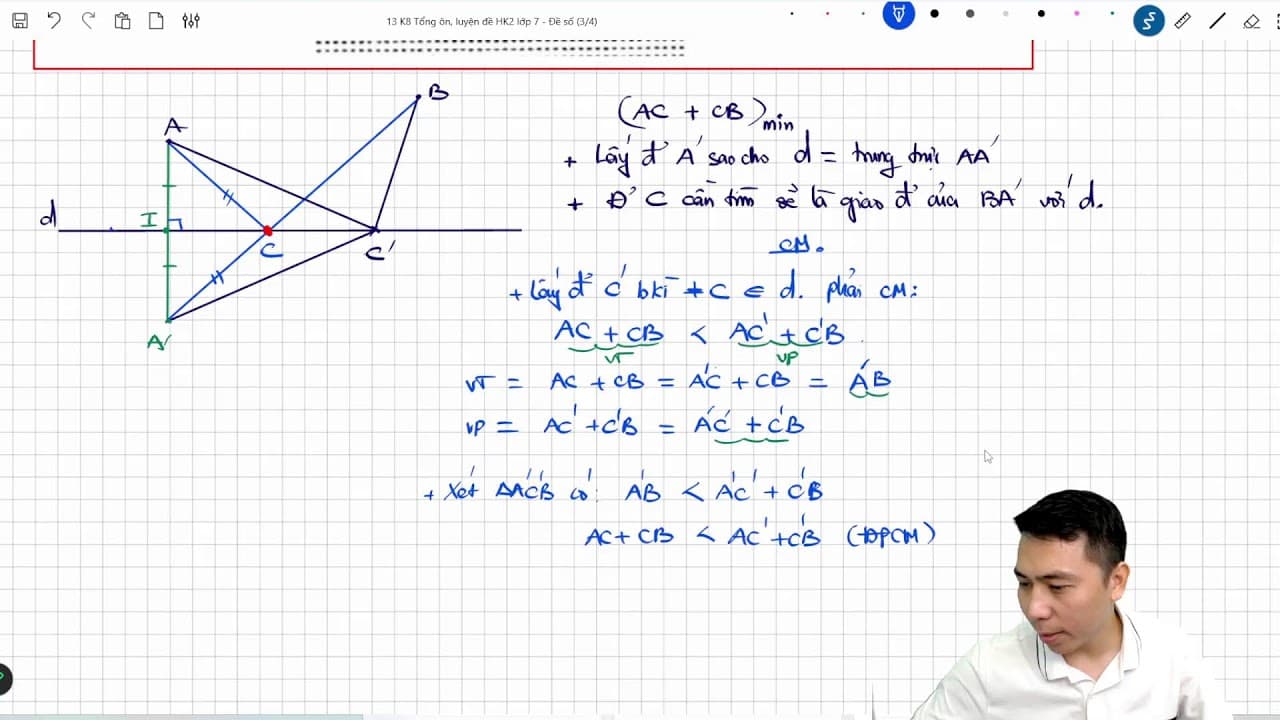 13 K8 Tổng ôn, luyện đề HK2 lớp 7 - Đề số (3/4)
B
A
d
I
C
C'
A'
(AC + CB)min
+ Lấy đ' A' sao cho d = trung trực AA'
+ Đ' C cần tìm sẽ là giao đ' của BA' với d.
CM.
+ Lấy đ' C' bkì ≠ C ∈ d. phải CM:
AC + CB < AC' + C'B
VT VP
VT = AC + CB = A'C + CB = A'B
VP = AC' + C'B = A'C' + C'B
+ Xét ΔA'C'B có: A'B < A'C' + C'B
AC + CB < AC' + C'B (ĐPCM)